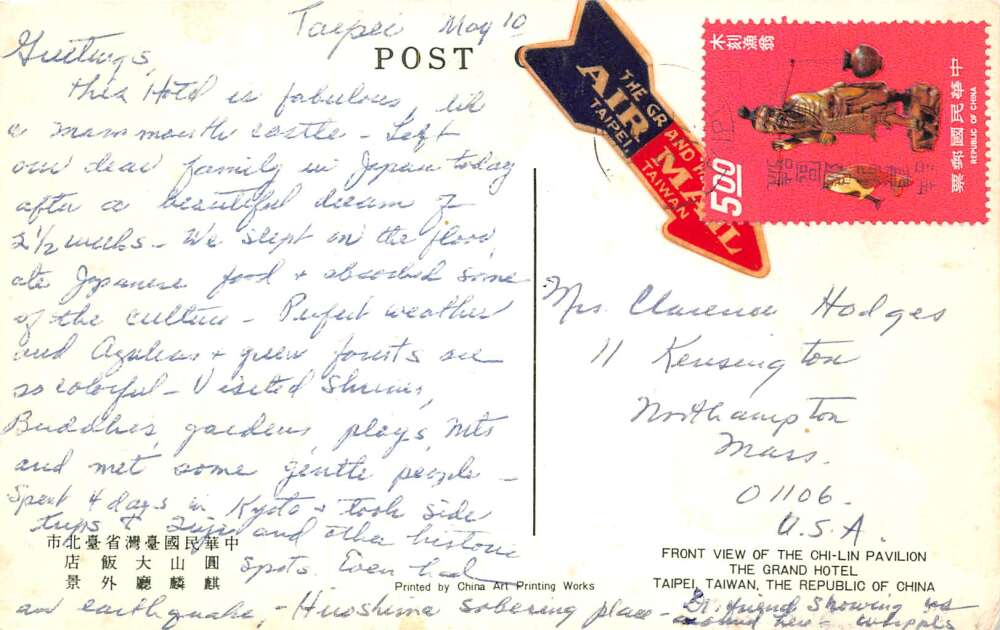 Taipei May 10
POST
Greetings,
This Hotel is fabulous, like
a mammouth castle - Left
our dear family in Japan today
after a beautiful dream of
2 1/2 weeks - We slept on the floor,
ate Japanese food + absorbed some
of the culture - Perfect weather
and Azaleas + green forests are
so colorful - Visited Shrines,
Buddhas, gardens, plays, Mts
and met some gentle people -
Spent 4 days in Kyoto + took side
trips to and other historic
spots. Even had
an earthquake, - Hiroshima sobering place - Dr. friend showing us
around here - Whipples
THE GRAND HOTEL
AIR MAIL
TAIPEI TAIWAN
木刻漁翁
中華民國郵票
REPUBLIC OF CHINA
5.00
Mrs. Clarence Hodges
11 Kensington
Northampton
Mass.
01106.
U.S.A.
市北臺省灣臺國民華中
店飯大山圓
景外廳麟麒
Printed by China Art Printing Works
FRONT VIEW OF THE CHI-LIN PAVILION
THE GRAND HOTEL
TAIPEI, TAIWAN, THE REPUBLIC OF CHINA